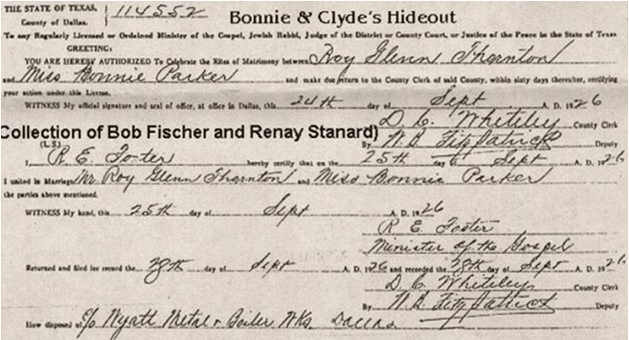 THE STATE OF TEXAS,
County of Dallas. 114552 Bonnie & Clyde's Hideout
To any Regularly Licensed or Ordained Minister of the Gospel, Jewish Rabbi, Judge of the District or County Court, or Justice of the Peace in the State of Texas
GREETING:
YOU ARE HEREBY AUTHORIZED To Celebrate the Rites of Matrimony between Roy Glenn Thornton
and Miss Bonnie Parker and make due return to the County Clerk of said County, within sixty days thereafter, certifying
your action under this License.
WITNESS My official signature and seal of office, at office in Dallas, this 24th day of Sept A. D. 1926
D. C. Whiteley County Clerk
Collection of Bob Fischer and Renay Stanard)
(L. S.) By W. R. Fitzpatrick Deputy
I, R. E. Foster hereby certify that on the 25th day of Sept A. D. 1926
I united in Marriage Mr Roy Glenn Thornton and Miss Bonnie Parker
the parties above mentioned.
WITNESS My hand, this 25th day of Sept A. D. 1926
R E Foster
Minister of the Gospel
Returned and filed for record the 28th day of Sept A. D. 1926 and recorded the 28th day of Sept A. D. 1926
D. C. Whiteley County Clerk
By W. R. Fitzpatrick Deputy
How disposed of c/o Wyatt Metal & Boiler Wks. Dallas